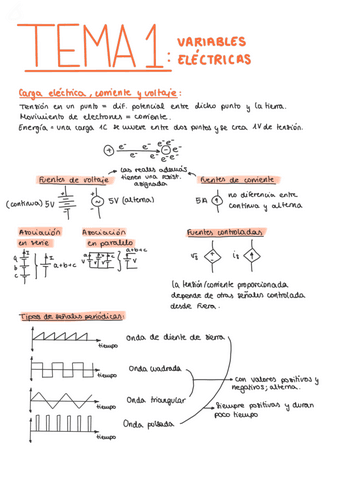 TEMA 1: VARIABLES
ELÉCTRICAS
Carga eléctrica, corriente y voltaje:
Tensión en un punto = dif. potencial entre dicho punto y la tierra.
Movimiento de electrones = corriente.
Energía = una carga 1C se mueve entre dos puntos y se crea 1V de tensión.
+ e⁻ e⁻ e⁻ e⁻ e⁻ e⁻ -
Las reales además
tienen una resist.
asignada
Fuentes de voltaje
Fuentes de corriente
(continua) 5V
5V (alterna)
5A
no diferencia entre
continua y alterna
Asociación
en serie
Asociación
en paralelo
Fuentes controladas
a
b
c
I
a+b+c
V
V
a+b+c
la tensión/corriente proporcionada
depende de otras señales controlada
desde fuera.
Tipos de señales periódicas:
tiempo
Onda de diente de sierra
tiempo
Onda cuadrada
con valores positivos y
negativos; alterna.
tiempo
Onda triangular
siempre positivas y duran
poco tiempo
tiempo
Onda pulsada